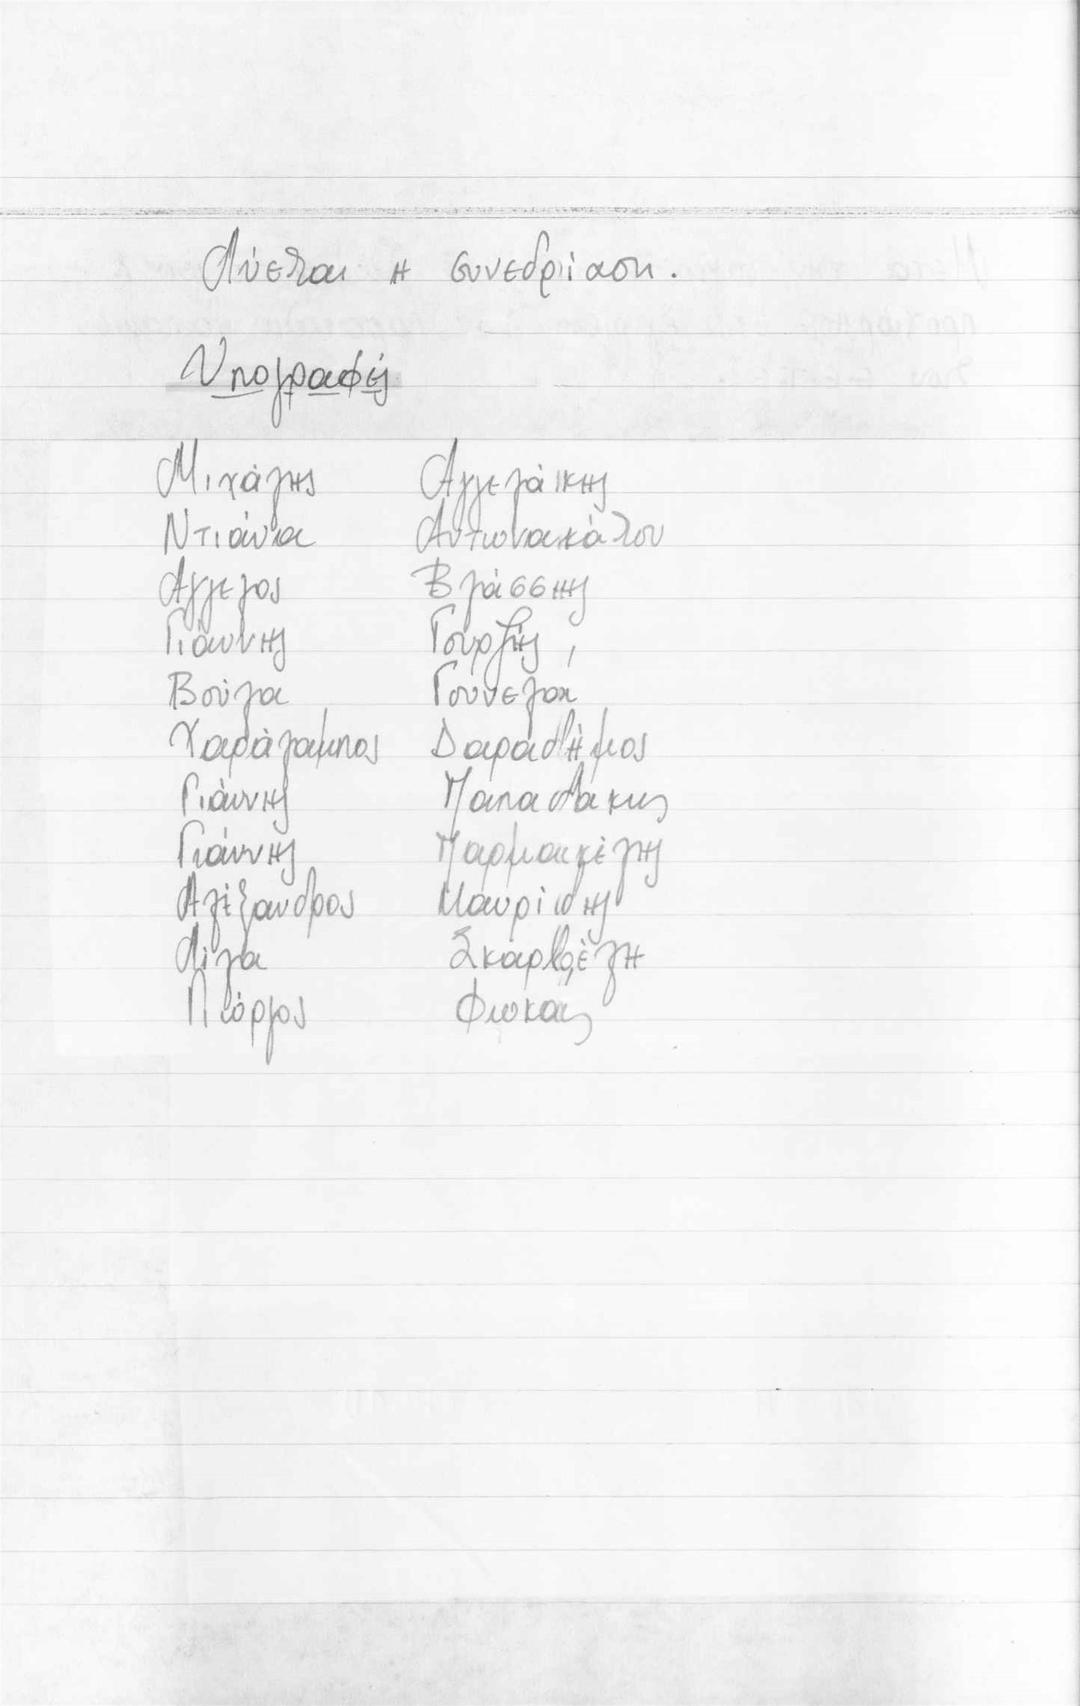 Λύεται η συνεδρίαση.
Υπογραφές
Μιχάλης Αγγελάκης
Ντιάνα Αντωνακάτου
Άγγελος Βλάσσης
Γιάννης Γουρζής
Βούλα Γουνελά
Χαράλαμπος Δαραδήμος
Γιάννης Παπαδάκης
Γιάννης Μαρμακέλης
Αλέξανδρος Μαυρίδης
Λίλα Σκαρβέλη
Γιώργος Φωκάς